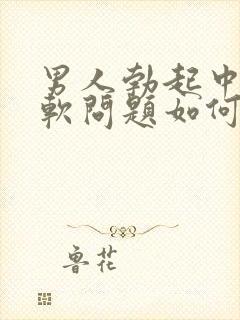 男人勃起中
軟問題如何
魯花